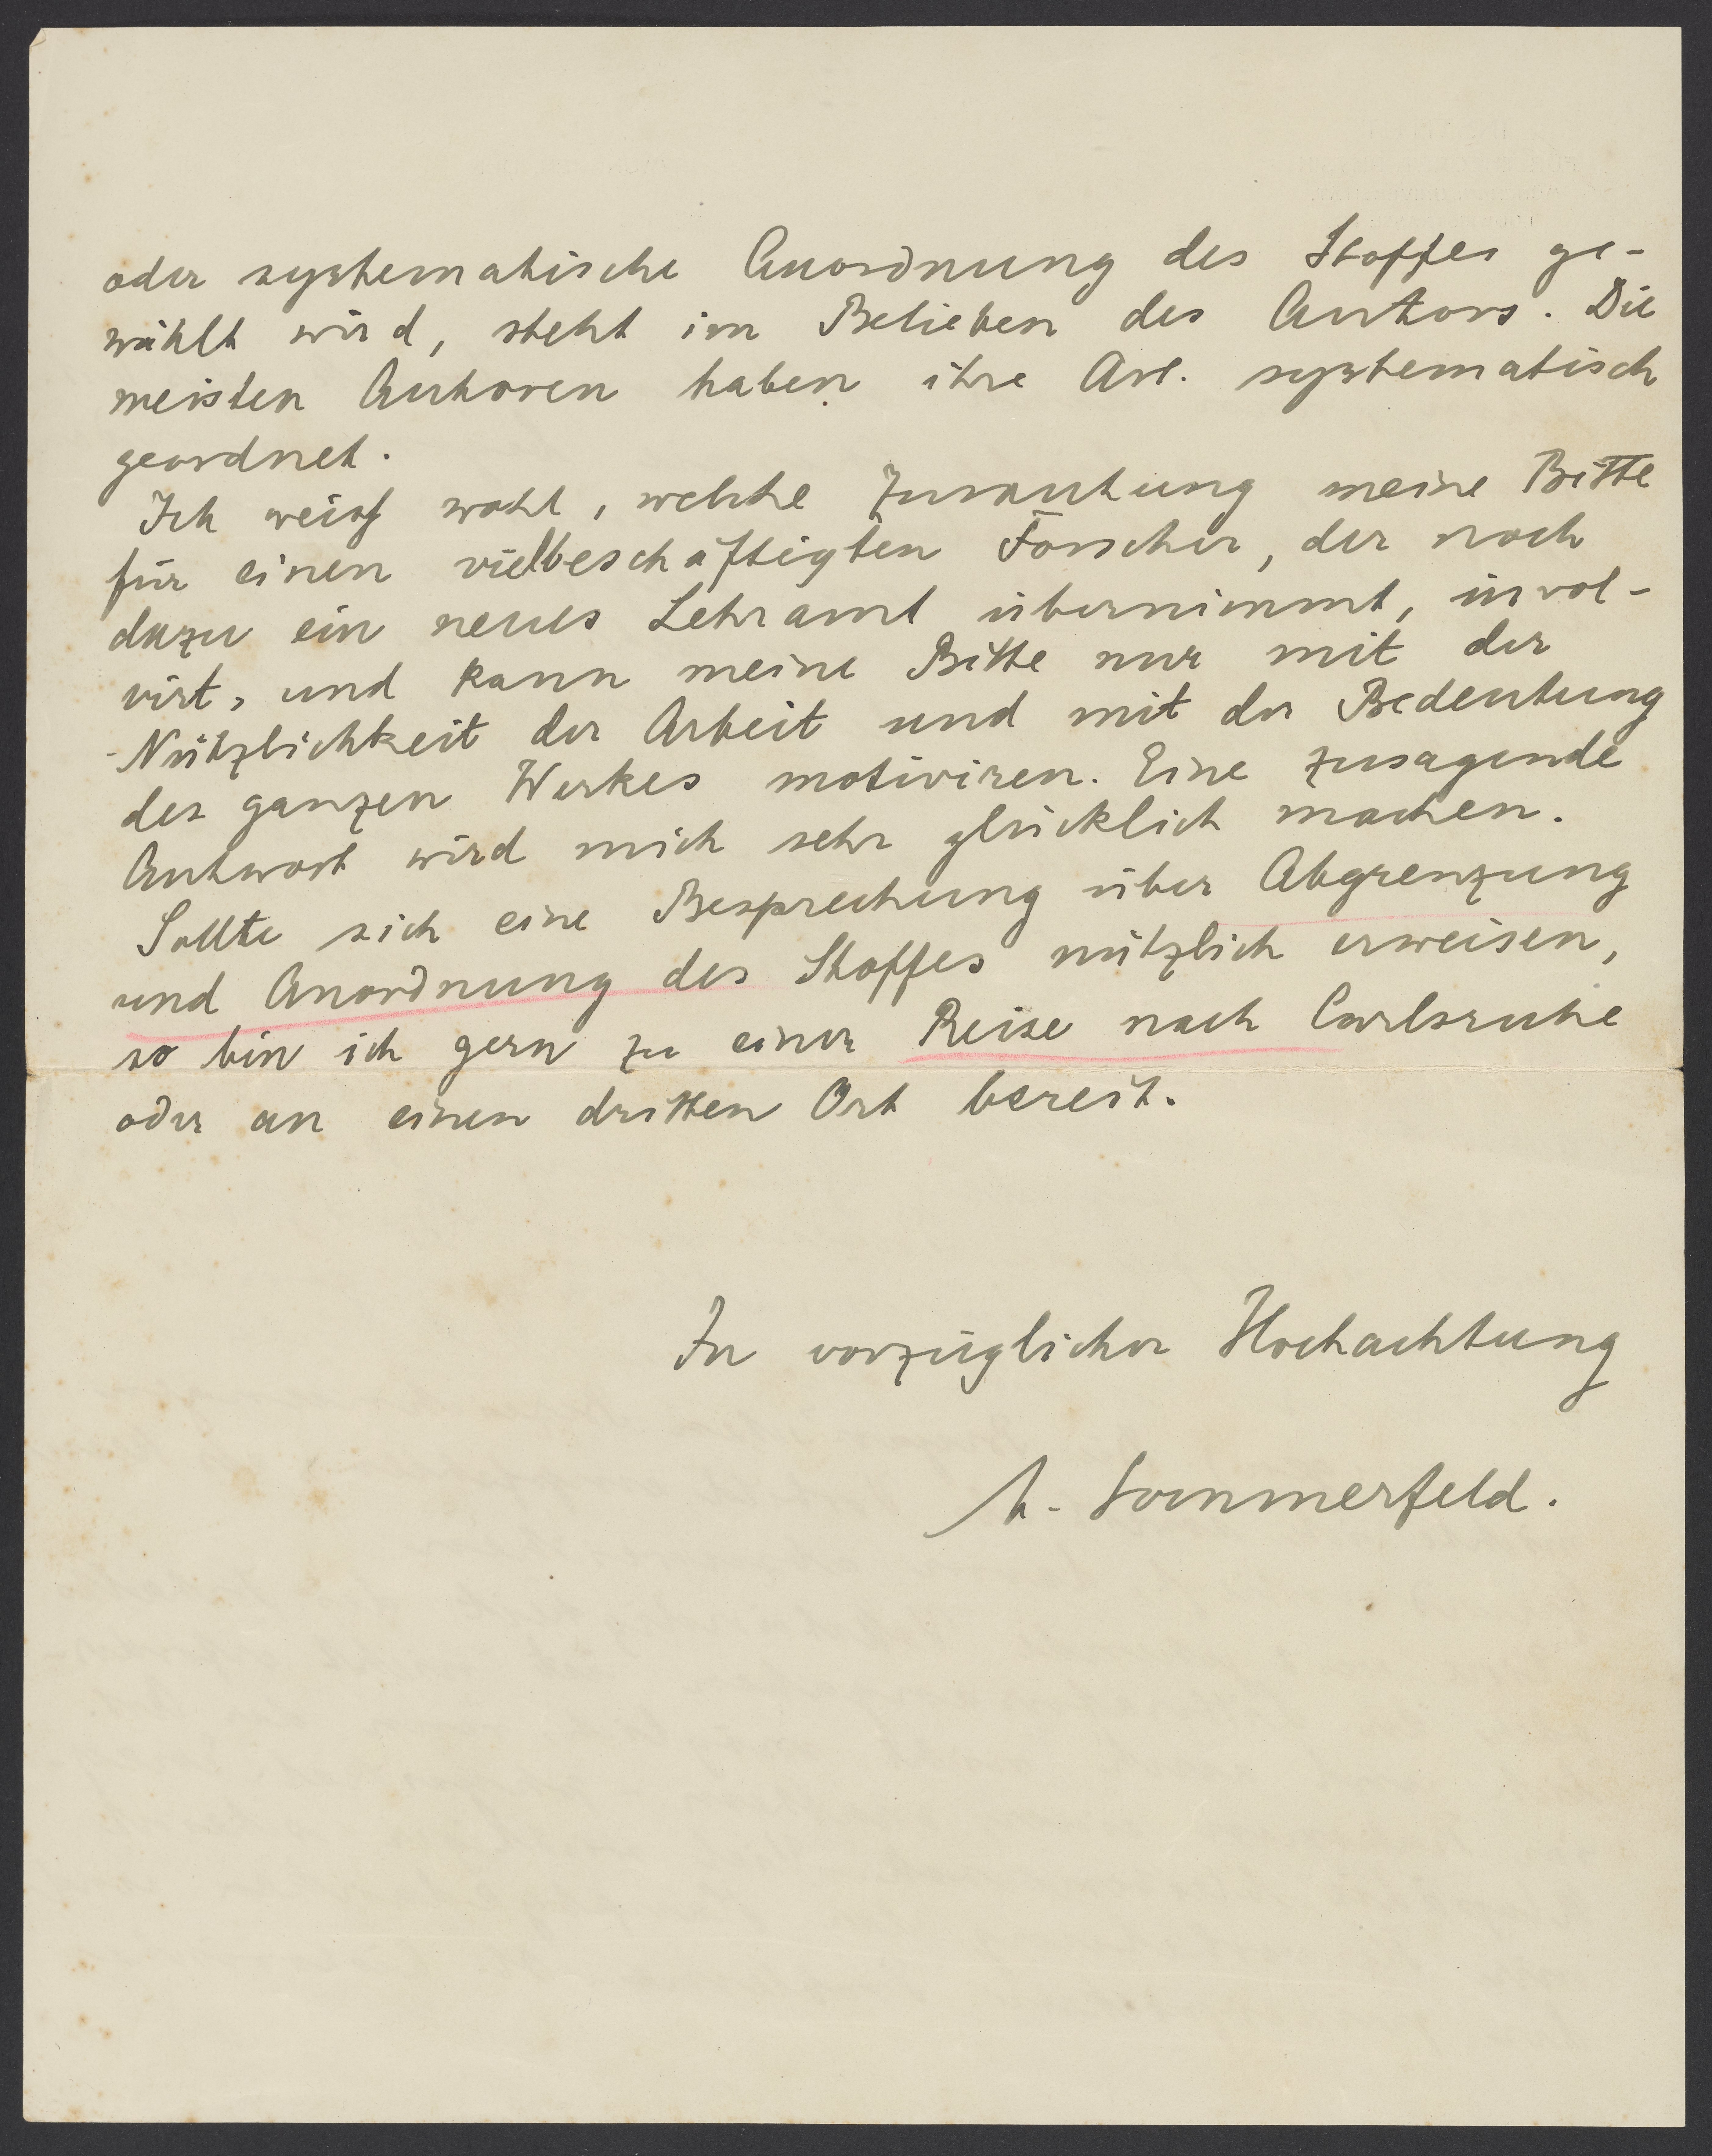 oder systematische Anordnung des Stoffes ge-
wählt wird, steht im Belieben des Autors. Die
meisten Autoren haben ihre Art. systematisch
geordnet.
Ich weiß wohl, welche Zumutung meine Bitte
für einen vielbeschäftigten Forscher, der noch
dazu ein neues Lehramt übernimmt, invol-
virt, und kann meine Bitte nur mit der
Nützlichkeit der Arbeit und mit der Bedeutung
des ganzen Werkes motiviren. Eine zusagende
Antwort wird mich sehr glücklich machen.
Sollte sich eine Besprechung über Abgrenzung
und Anordnung des Stoffes nützlich erweisen,
so bin ich gern zu einer Reise nach Carlsruhe
oder an einen dritten Ort bereit.
In vorzüglicher Hochachtung
A. Sommerfeld.